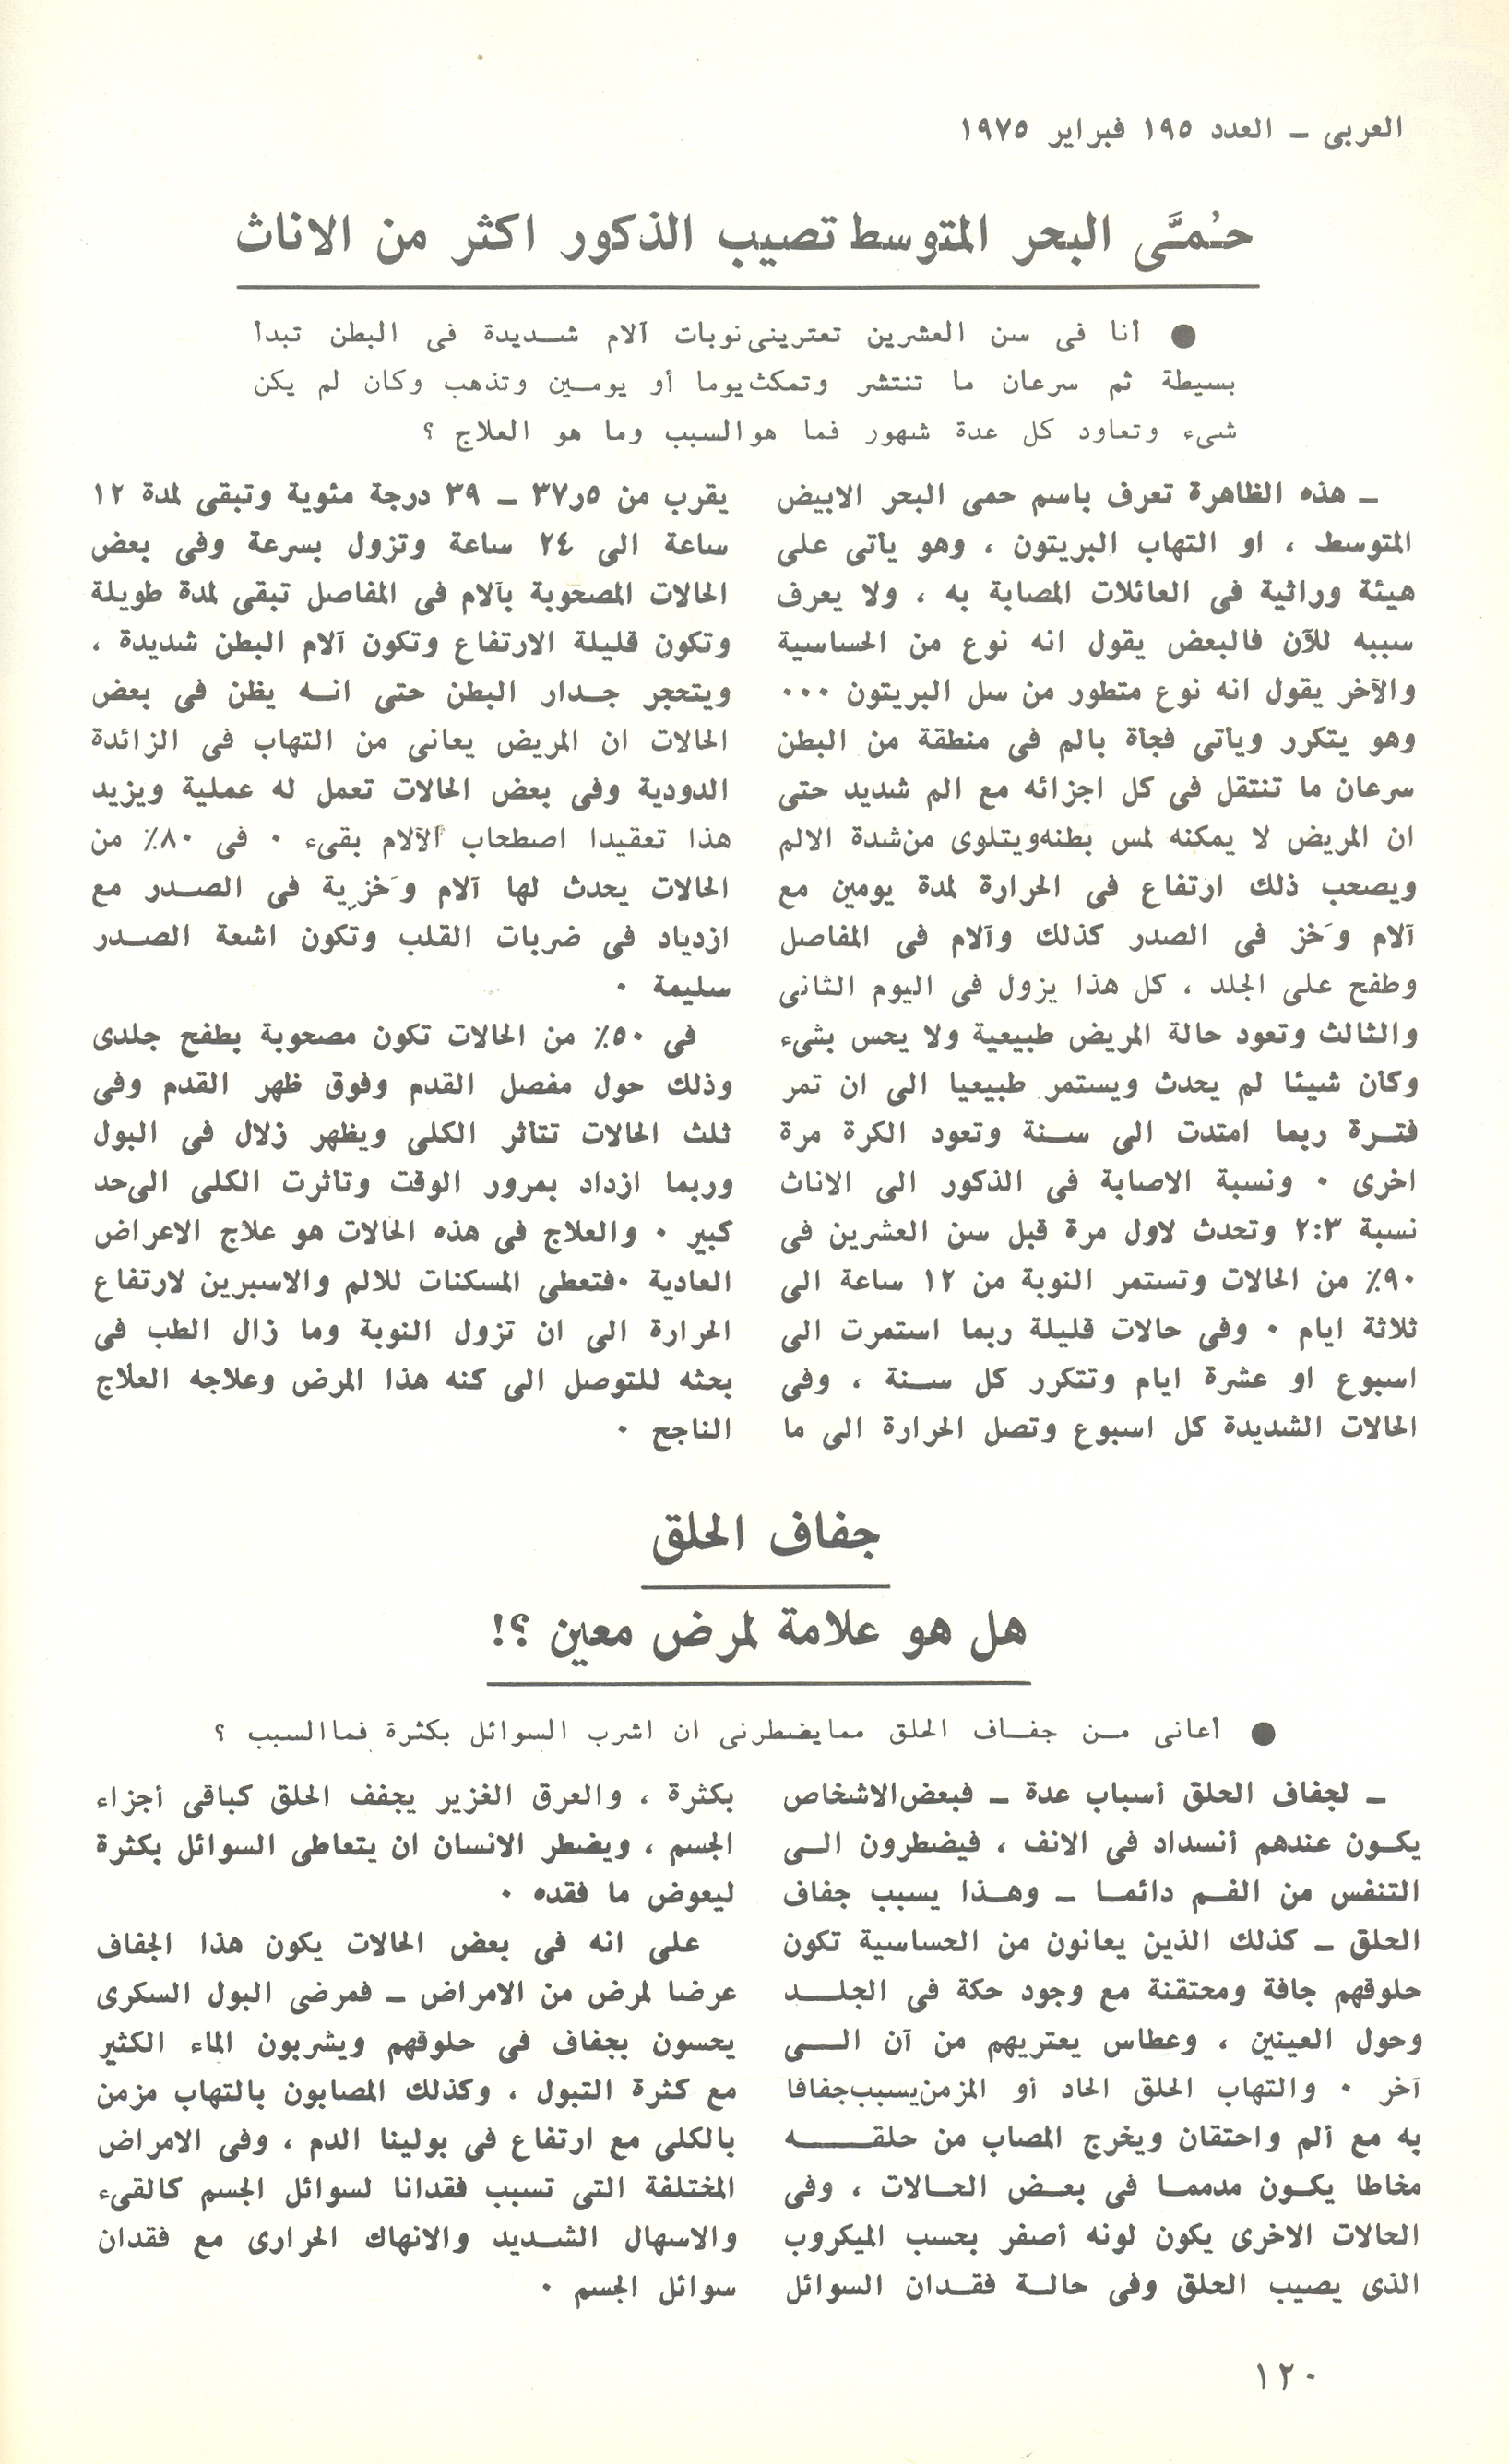 العربى ـ العدد ١٩٥ فبراير ١٩٧٥
حُمَّى البحر المتوسط تصيب الذكور اكثر من الاناث
● أنا فى سن العشرين تعترينى نوبات آلام شـديدة فى البطن تبدأ
بسيطة ثم سرعان ما تنتشر وتمكث يوما أو يومـين وتذهب وكان لم يكن
شىء وتعاود كل عدة شهور فما هو السبب وما هو العلاج ؟
ـ هذه الظاهرة تعرف باسم حمى البحر الابيض
المتوسط ، او التهاب البريتون ، وهو يأتى على
هيئة وراثية فى العائلات المصابة به ، ولا يعرف
سببه للآن فالبعض يقول انه نوع من الحساسية
والآخر يقول انه نوع متطور من سل البريتون ٠٠٠
وهو يتكرر ويأتى فجأة بالم فى منطقة من البطن
سرعان ما تنتقل فى كل اجزائه مع الم شديد حتى
ان المريض لا يمكنه لمس بطنه ويتلوى من شدة الالم
ويصحب ذلك ارتفاع فى الحرارة لمدة يومين مع
آلام وَخز فى الصدر كذلك وآلام فى المفاصل
وطفح على الجلد ، كل هذا يزول فى اليوم الثانى
والثالث وتعود حالة المريض طبيعية ولا يحس بشىء
وكأن شيئا لم يحدث ويستمر طبيعيا الى ان تمر
فتـرة ربما امتدت الى سـنة وتعود الكرة مرة
اخرى ٠ ونسبة الاصابة فى الذكور الى الاناث
نسبة ٢:٣ وتحدث لاول مرة قبل سن العشرين فى
٩٠٪ من الحالات وتستمر النوبة من ١٢ ساعة الى
ثلاثة ايام ٠ وفى حالات قليلة ربما استمرت الى
اسبوع او عشرة ايام وتتكرر كل سـنة ، وفى
الحالات الشديدة كل اسبوع وتصل الحرارة الى ما
يقرب من ٣٧٫٥ ـ ٣٩ درجة مئوية وتبقى لمدة ١٢
ساعة الى ٢٤ ساعة وتزول بسرعة وفى بعض
الحالات المصحوبة بآلام فى المفاصل تبقى لمدة طويلة
وتكون قليلة الارتفاع وتكون آلام البطن شديدة ،
ويتحجر جـدار البطن حتى انـه يظن فى بعض
الحالات ان المريض يعانى من التهاب فى الزائدة
الدودية وفى بعض الحالات تعمل له عملية ويزيد
هذا تعقيدا اصطحاب الآلام بقىء ٠ فى ٨٠٪ من
الحالات يحدث لها آلام وَخزِية فى الصـدر مع
ازدياد فى ضربات القلب وتكون اشعة الصـدر
سليمة ٠
فى ٥٠٪ من الحالات تكون مصحوبة بطفح جلدى
وذلك حول مفصل القدم وفوق ظهر القدم وفى
ثلث الحالات تتأثر الكلى ويظهر زلال فى البول
وربما ازداد بمرور الوقت وتأثرت الكلى الى حد
كبير ٠ والعلاج فى هذه الحالات هو علاج الاعراض
العادية ٠ فتعطى المسكنات للالم والاسبرين لارتفاع
الحرارة الى ان تزول النوبة وما زال الطب فى
بحثه للتوصل الى كنه هذا المرض وعلاجه العلاج
الناجح ٠
جفاف الحلق
هل هو علامة لمرض معين ؟!
● أعانى مـن جفـاف الحلق مما يضطرنى ان اشرب السوائل بكثرة فما السبب ؟
ـ لجفاف الحلق أسباب عدة ـ فبعض الاشخاص
يكـون عندهم أنسداد فى الانف ، فيضطرون الـى
التنفس من الفـم دائمـا ـ وهـذا يسبب جفاف
الحلق ـ كذلك الذين يعانون من الحساسية تكون
حلوقهم جافة ومحتقنة مع وجود حكة فى الجلـد
وحول العينين ، وعطاس يعتريهم من آن الـى
آخر ٠ والتهاب الحلق الحاد أو المزمن يسبب جفافا
به مع ألم واحتقان ويخرج المصاب من حلقـه
مخاطا يكـون مدممـا فى بعـض الحـالات ، وفى
الحالات الاخرى يكون لونه أصفر بحسب الميكروب
الذى يصيب الحلق وفى حالـة فقـدان السوائل
بكثرة ، والعرق الغزير يجفف الحلق كباقى أجزاء
الجسم ، ويضطر الانسان ان يتعاطى السوائل بكثرة
ليعوض ما فقده ٠
على انه فى بعض الحالات يكون هذا الجفاف
عرضا لمرض من الامراض ـ فمرضى البول السكرى
يحسون بجفاف فى حلوقهم ويشربون الماء الكثير
مع كثرة التبول ، وكذلك المصابون بالتهاب مزمن
بالكلى مع ارتفاع فى بولينا الدم ، وفى الامراض
المختلفة التى تسبب فقدانا لسوائل الجسم كالقىء
والاسهال الشـديد والانهاك الحرارى مع فقدان
سوائل الجسم ٠
١٢٠